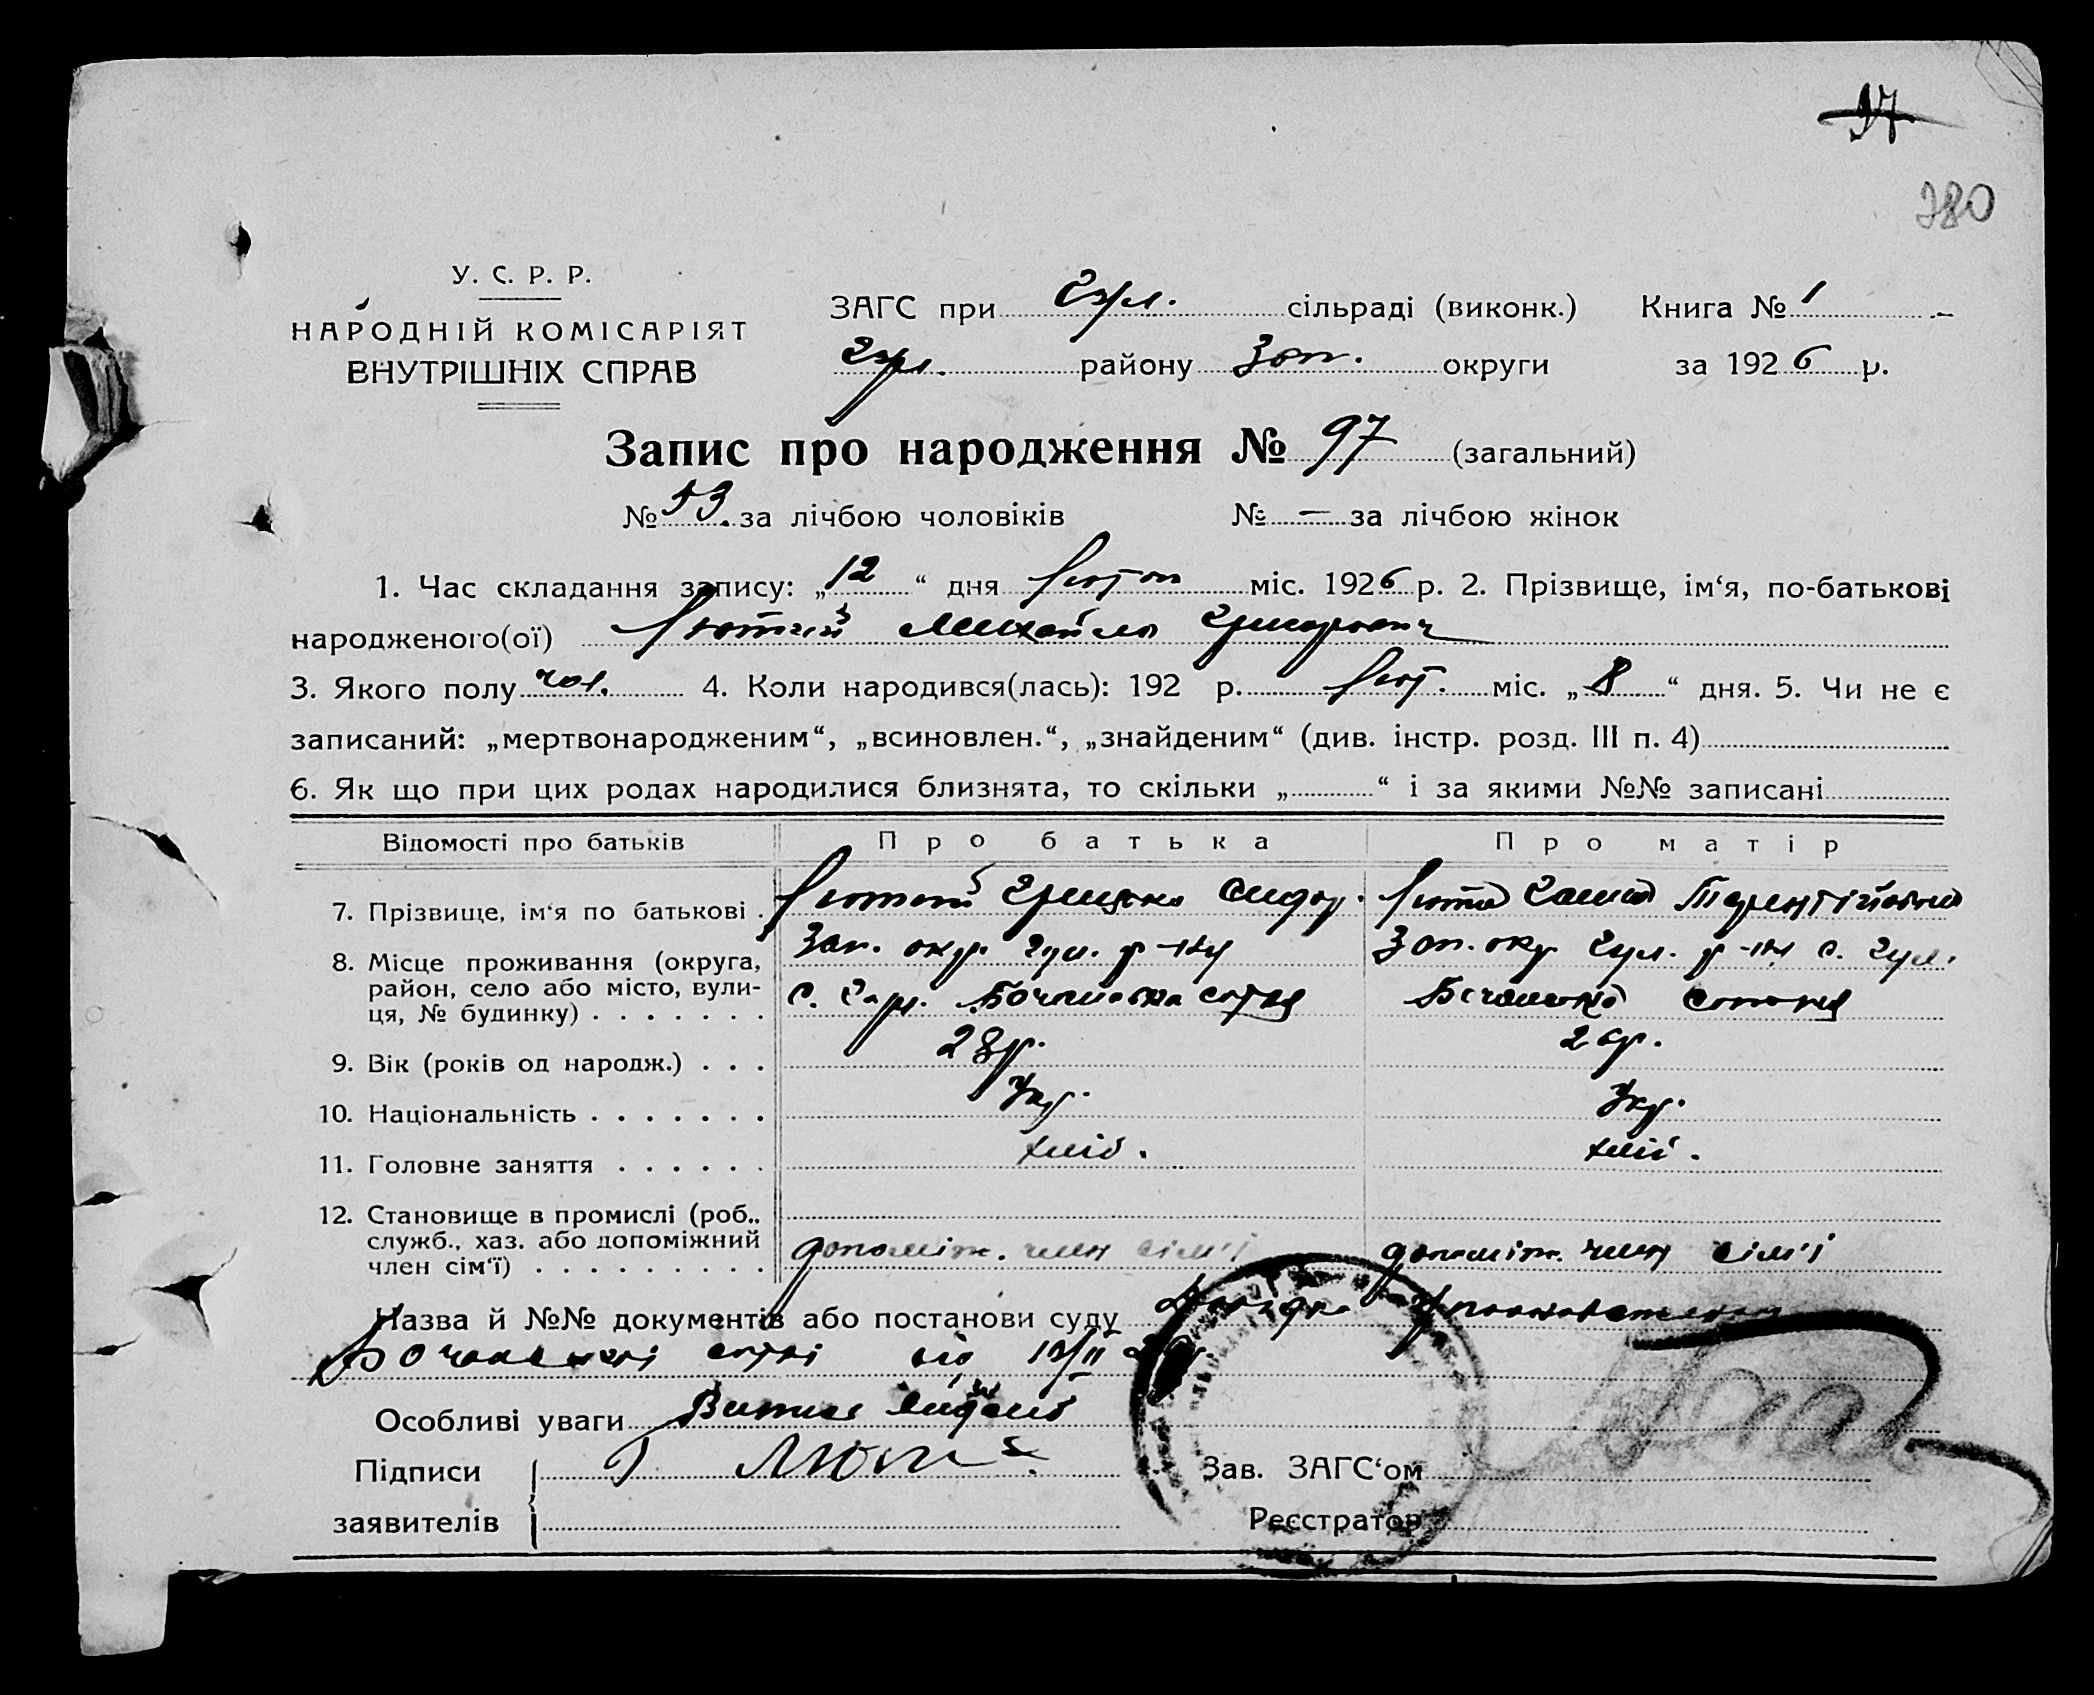 97
380
У. С. Р. Р.
НАРОДНІЙ КОМІСАРІЯТ
ВНУТРІШНІХ СПРАВ
ЗАГС при Гул. сільраді (виконк.) Книга № 1
Гул. району Зап. округи за 1926 р.
Запис про народження № 97 (загальний)
№ 53. за лічбою чоловіків № — за лічбою жінок
1. Час складання запису: „12“ дня Лютоп міс. 1926 р. 2. Прізвище, ім‘я, по-батькові
народженого(ої) Лютий Михайло Григорович
3. Якого полу чол. 4. Коли народився(лась): 192 р. Лют. міс. „8“ дня. 5. Чи не є
записаний: „мертвонародженим“, „всиновлен.“, „знайденим“ (див. інстр. розд. III п. 4)
6. Як що при цих родах народилися близнята, то скільки „ “ і за якими №№ записані
Відомості про батьків Про батька Про матір
7. Прізвище, ім‘я по батькові . Лютий Грицько Сидор. Люта Терентіївна
8. Місце проживання (округа, Зап. окр. Гул. р-ну Зап. окр Гул. р-н с. Гул.
район, село або місто, вули- с. Гул. Бочанська сотня Бочанська сотня
ця, № будинку) . . . . . . .
9. Вік (років од народж.) . . . 28р. 2 р.
10. Національність . . . . . . . Укр. Укр.
11. Головне заняття . . . . . . хліб. хліб.
12. Становище в промислі (роб.,
служб., хаз. або допоміжний допоміж. член сім'ї допоміж. член сім'ї
член сім‘ї) . . . . . . . . . .
Назва й №№ документів або постанови суду Довідка Уповноваженого
сотні від 12/II 26р.
Особливі уваги Витис видано
Підписи Г Люти Зав. ЗАГС‘ом
заявителів Реєстратор